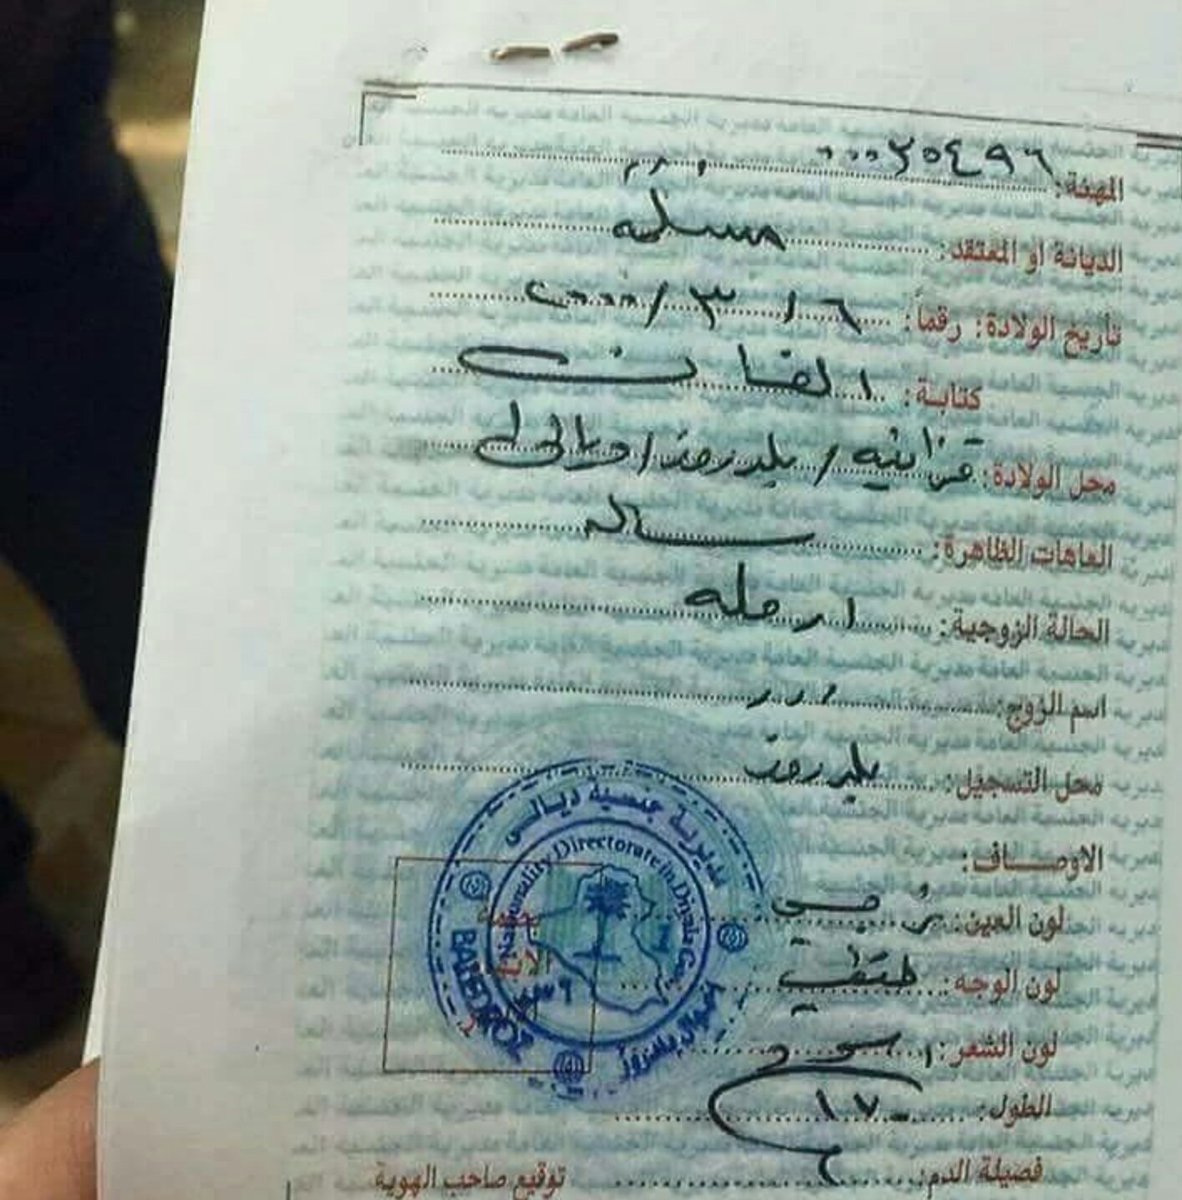 المهنة: ٠٠٠٢٥٤٩٦
الديانة او المعتقد: مسلمة
تأريخ الولادة: رقماً: ٦ / ٣ / ٢٠٠٠
كتابة: الفان
محل الولادة: قزانيه / بلدروز / ديالى
العاهات الظاهرة: سالمه
الحالة الزوجية: ارمله
اسم الزوج:
محل التسجيل: بلدروز
الاوصاف:
لون العين:
لون الوجه: حنطي
لون الشعر: اسود
الطول: ١٧٠
فصيلة الدم:
توقيع صاحب الهوية
مديرية جنسية ديالى
Nationality Directorate in Diyala Gov.
احوال بلدروز